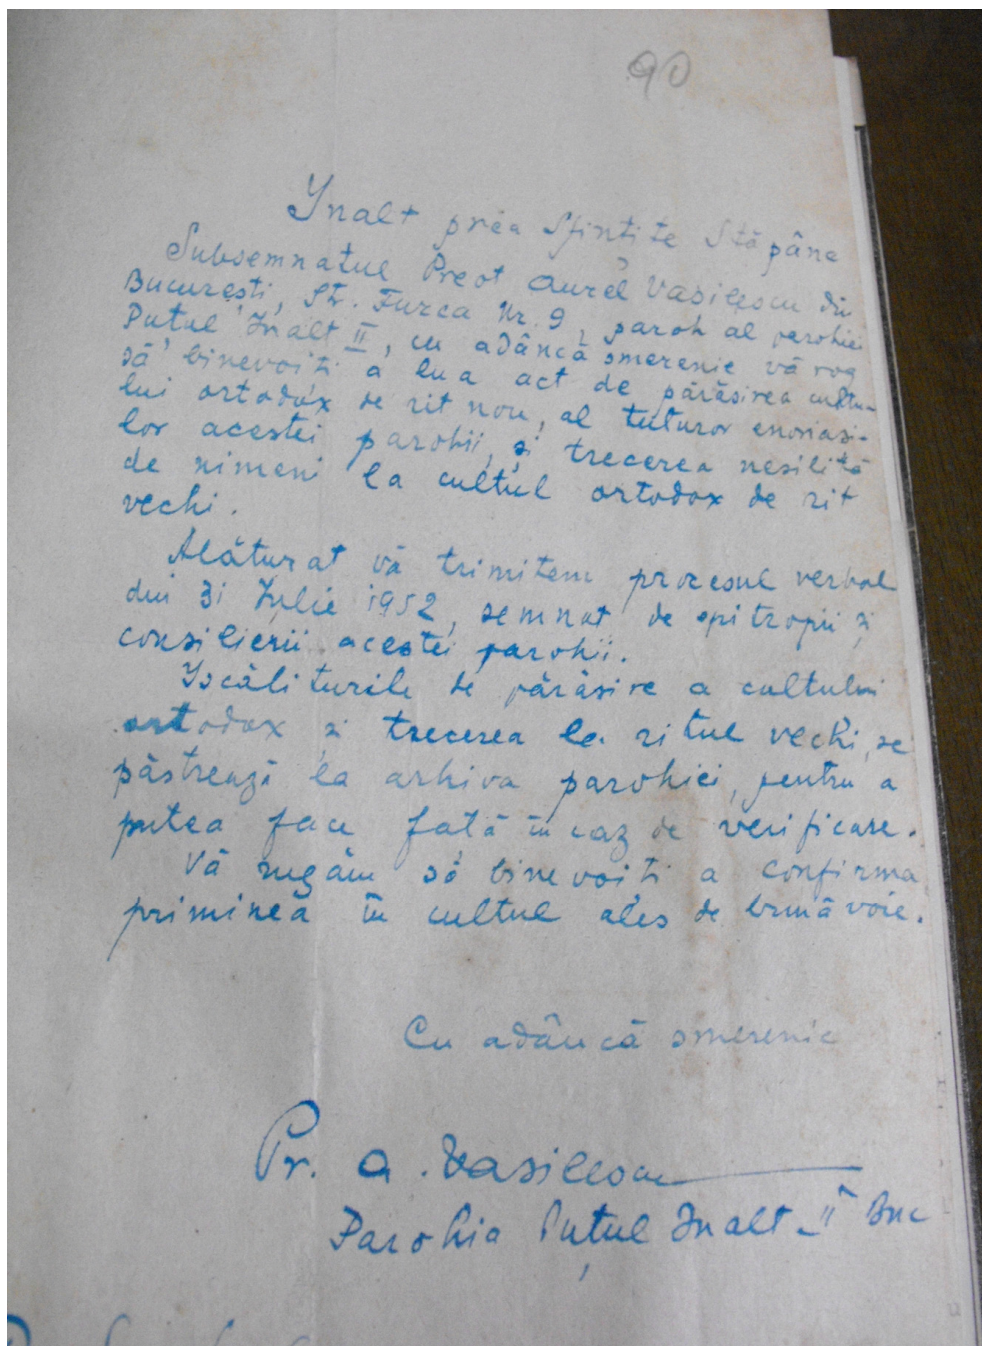 90
Ynalt prea Sfințite Stăpâne
Subsemnatul Preot Aurel Vasilescu din
București, Str. Furca Nr. 9, paroh al parohiei
Puțul Inalt II, cu adâncă smerenie vă rog
să binevoiți a lua act de părăsirea cultu-
lui ortodox de rit nou, al tuturor enoriași-
lor acestei parohii, și trecerea nesilită
de nimeni la cultul ortodox de rit
vechi.
Alăturat vă trimitem procesul verbal
din 31 Iulie 1952, semnat de epitropii și
consilierii acestei parohii.
Yscăliturile de părăsire a cultului
ortodox și trecerea la ritul vechi, se
păstrează la arhiva parohiei, pentru a
putea face față în caz de verificare.
Vă rugăm să binevoiți a confirma
priminea în cultul ales de bună voie.
Cu adâncă smerenie
Pr. A. Vasilescu
Parohia Puțul Inalt II Buc